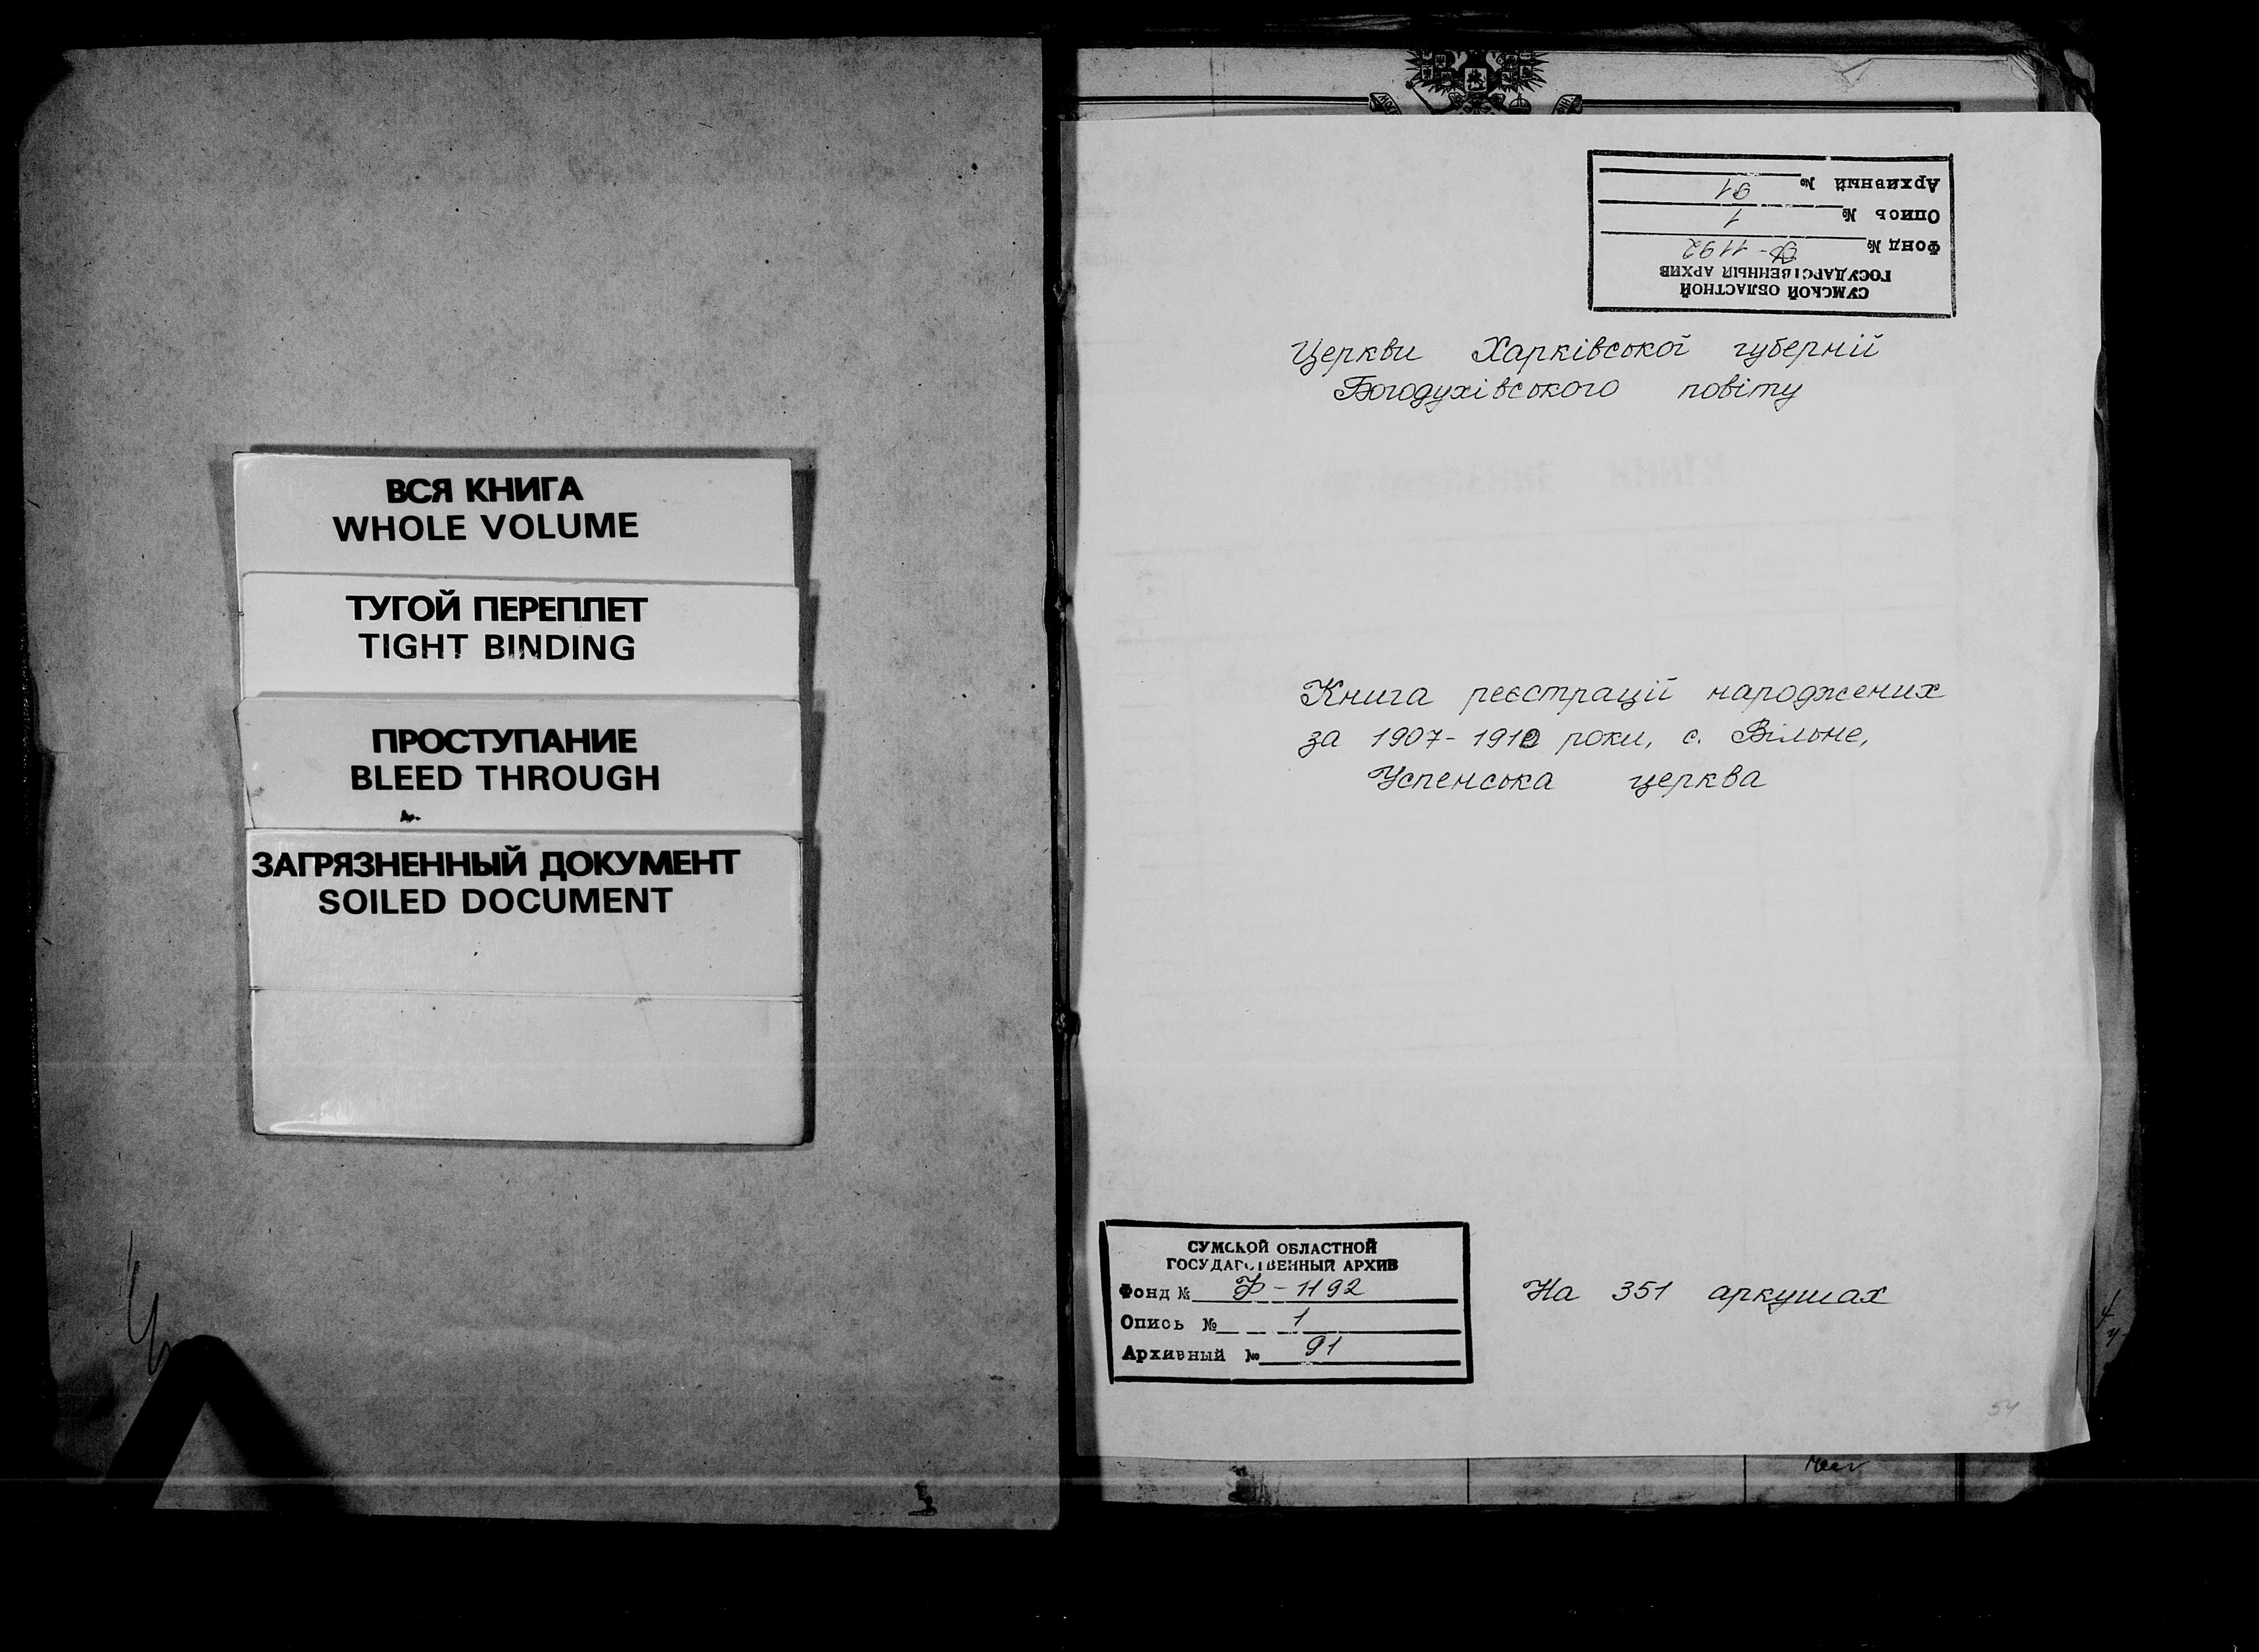 ВСЯ КНИГА
WHOLE VOLUME
ТУГОЙ ПЕРЕПЛЕТ
TIGHT BINDING
ПРОСТУПАНИЕ
BLEED THROUGH
ЗАГРЯЗНЕННЫЙ ДОКУМЕНТ
SOILED DOCUMENT
СУМСКОЙ ОБЛАСТНОЙ
ГОСУДАРСТВЕННЫЙ АРХИВ
Фонд № Ф-1192
Опись № 1
Архивный № 91
Церкви Харківської губернії
Богодухівського повіту
Книга реєстрації народжених
за 1907-1910 роки, с. Вільне,
Успенська церква
СУМСКОЙ ОБЛАСТНОЙ
ГОСУДАРСТВЕННЫЙ АРХИВ
Фонд № Ф-1192
Опись № 1
Архивный № 91
На 351 аркушах
54